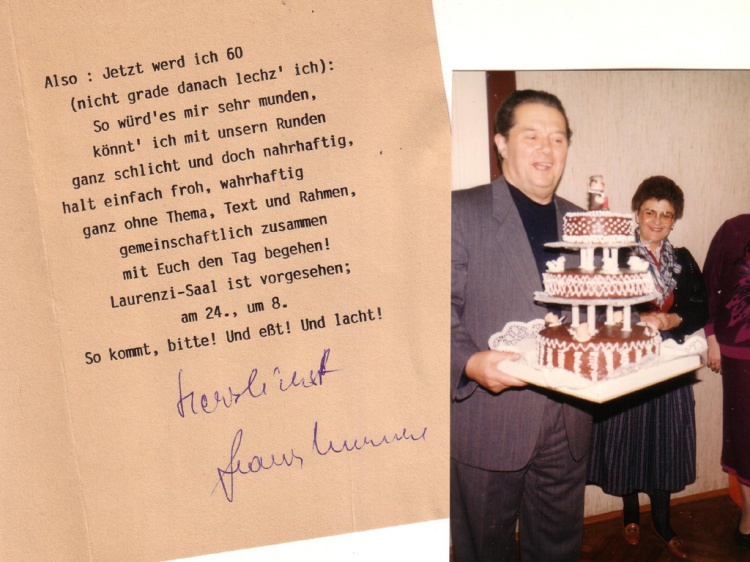 Also : Jetzt werd ich 60
(nicht grade danach lechz' ich):
So würd'es mir sehr munden,
könnt' ich mit unsern Runden
ganz schlicht und doch nahrhaftig,
halt einfach froh, wahrhaftig
ganz ohne Thema, Text und Rahmen,
gemeinschaftlich zusammen
mit Euch den Tag begehen!
Laurenzi-Saal ist vorgesehen;
am 24., um 8.
So kommt, bitte! Und eßt! Und lacht!
Herzlichst
Franz